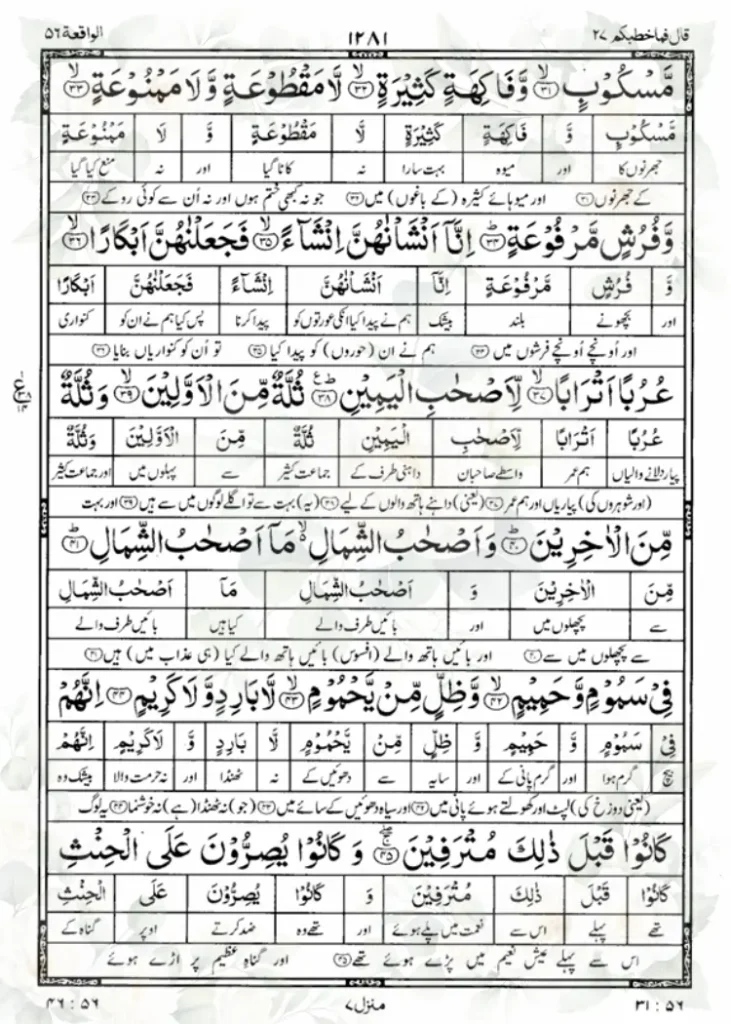 قال فماخطبکم ۲۷
۱۲۸۱
الواقعة ۵۶
مَّسْكُوْبٍ ۙ﴿۳۱﴾ وَّفَاكِهَةٍ كَثِيْرَةٍ ۙ﴿۳۲﴾ لَّا مَقْطُوْعَةٍ وَّلَا مَمْنُوْعَةٍ ۙ﴿۳۳﴾
مَّسْكُوْبٍ وَّ فَاكِهَةٍ كَثِيْرَةٍ لَّا مَقْطُوْعَةٍ وَّ لَا مَمْنُوْعَةٍ
جھرنوں کا اور میوہ بہت سارا نہ کاٹا گیا اور نہ منع کیا گیا
کے جھرنوں ﴿۳۱﴾ اور میوہائے کثیرہ (کے باغوں) میں ﴿۳۲﴾ جو نہ کبھی ختم ہوں اور نہ اُن سے کوئی روکے ﴿۳۳﴾
وَّفُرُشٍ مَّرْفُوْعَةٍ ؕ﴿۳۴﴾ اِنَّاۤ اَنْشَاْنٰهُنَّ اِنْشَآءً ۙ﴿۳۵﴾ فَجَعَلْنٰهُنَّ اَبْكَارًا ۙ﴿۳۶﴾
وَّ فُرُشٍ مَّرْفُوْعَةٍ اِنَّاۤ اَنْشَاْنٰهُنَّ اِنْشَآءً فَجَعَلْنٰهُنَّ اَبْكَارًا
اور بچھونے بلند بیشک ہم نے پیدا کیا انکی عورتوں کو پیدا کرنا پس کیا ہم نے ان کو کنواری
اور اُونچے اُونچے فرشوں میں ﴿۳۴﴾ ہم نے ان (حوروں) کو پیدا کیا ﴿۳۵﴾ تو اُن کو کنواریاں بنایا ﴿۳۶﴾
عُرُبًا اَتْرَابًا ۙ﴿۳۷﴾ لِّاَصْحٰبِ الْيَمِيْنِ ؕ﴿۳۸﴾ ثُلَّةٌ مِّنَ الْاَوَّلِيْنَ ۙ﴿۳۹﴾ وَثُلَّةٌ
ع ۳۸ ۱۴
عُرُبًا اَتْرَابًا لِّاَصْحٰبِ الْيَمِيْنِ ثُلَّةٌ مِّنَ الْاَوَّلِيْنَ وَثُلَّةٌ
پیار دلانے والیاں ہم عمر واسطے صاحبان داہنی طرف کے جماعت کثیر سے پہلوں میں اور جماعت کثیر
(اور شوہروں کی) پیاریاں اور ہم عمر ﴿۳۷﴾ (یعنی) داہنے ہاتھ والوں کے لیے ﴿۳۸﴾ (یہ) بہت سے تو اگلے لوگوں میں سے ہیں ﴿۳۹﴾ اور بہت
مِّنَ الْاٰخِرِيْنَ ؕ﴿۴۰﴾ وَاَصْحٰبُ الشِّمَالِ ۙ۬ مَاۤ اَصْحٰبُ الشِّمَالِ ؕ﴿۴۱﴾
مِّنَ الْاٰخِرِيْنَ وَ اَصْحٰبُ الشِّمَالِ مَاۤ اَصْحٰبُ الشِّمَالِ
سے پچھلوں میں اور بائیں طرف والے کیا ہیں بائیں طرف والے
سے پچھلوں میں سے ﴿۴۰﴾ اور بائیں ہاتھ والے (افسوس) بائیں ہاتھ والے کیا (ہی عذاب میں) ہیں ﴿۴۱﴾
فِيْ سَمُوْمٍ وَّحَمِيْمٍ ۙ﴿۴۲﴾ وَّظِلٍّ مِّنْ يَّحْمُوْمٍ ۙ﴿۴۳﴾ لَّا بَارِدٍ وَّلَا كَرِيْمٍ ﴿۴۴﴾ اِنَّهُمْ
فِيْ سَمُوْمٍ وَّ حَمِيْمٍ وَّ ظِلٍّ مِّنْ يَّحْمُوْمٍ لَّا بَارِدٍ وَّ لَاكَرِيْمٍ اِنَّهُمْ
بیچ گرم ہوا اور گرم پانی کے اور سایہ سے دھوئیں کے نہ ٹھنڈا اور نہ حرمت والا بیشک وہ
(یعنی دوزخ کی) لپٹ اور کھولتے ہوئے پانی میں ﴿۴۲﴾ اور سیاہ دھوئیں کے سائے میں ﴿۴۳﴾ (جو) نہ ٹھنڈا (ہے) نہ خوشنما ﴿۴۴﴾ یہ لوگ
كَانُوْا قَبْلَ ذٰلِكَ مُتْرَفِيْنَ ۚۖ﴿۴۵﴾ وَكَانُوْا يُصِرُّوْنَ عَلَى الْحِنْثِ
كَانُوْا قَبْلَ ذٰلِكَ مُتْرَفِيْنَ وَ كَانُوْا يُصِرُّوْنَ عَلَى الْحِنْثِ
تھے پہلے اس سے نعمت میں پلے ہوئے اور تھے وہ ضد کرتے اوپر گناہ کے
اس سے پہلے عیش نعیم میں پڑے ہوئے تھے ﴿۴۵﴾ اور گناہِ عظیم پر اڑے ہوئے
۵۶ : ۳۱
منزل ۷
۵۶ : ۴۶